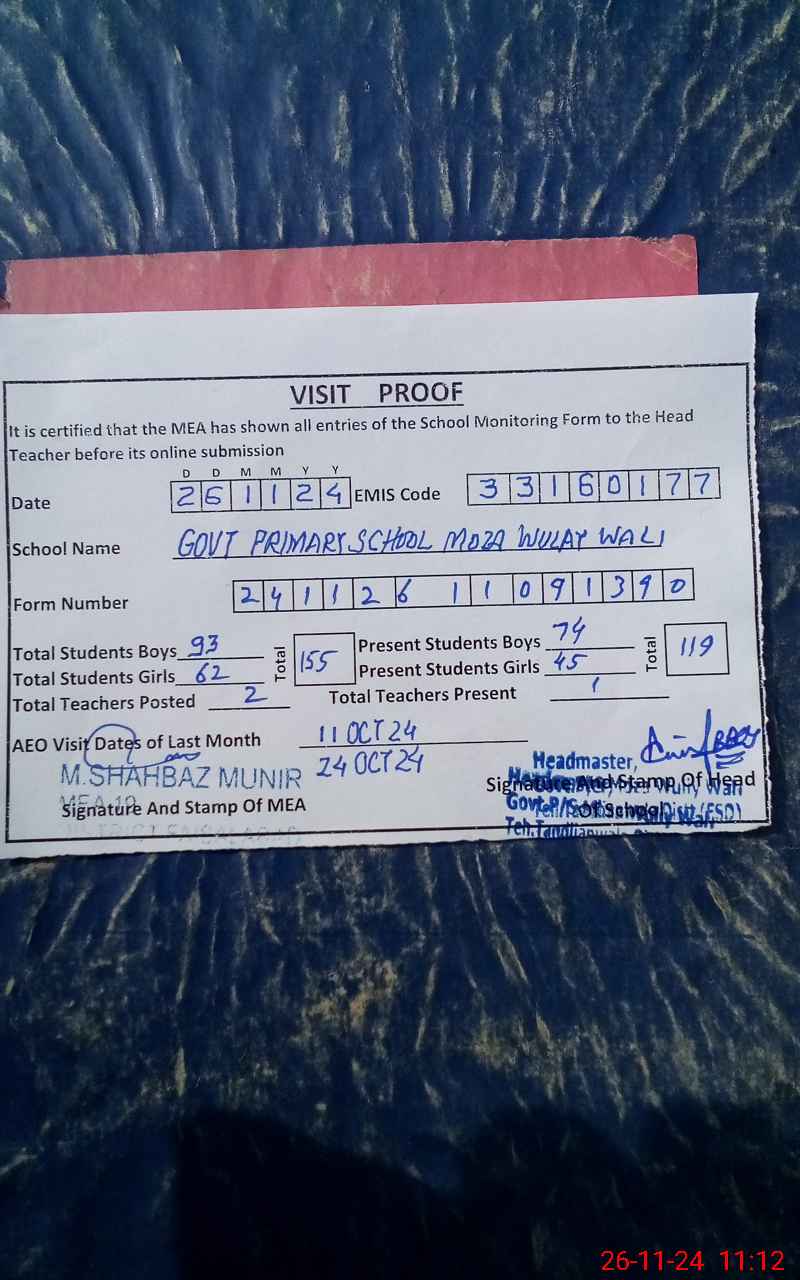 VISIT PROOF
It is certified that the MEA has shown all entries of the School Monitoring Form to the Head
Teacher before its online submission
D D M M Y Y
Date 261124 EMIS Code 33160177
School Name GOVT PRIMARY SCHOOL MOZA WULAY WALI
Form Number 241126 11091390
Total Students Boys 93 Total 155 Present Students Boys 74 Total 119
Total Students Girls 62 Present Students Girls 45
Total Teachers Posted 2 Total Teachers Present 1
AEO Visit Dates of Last Month 11 OCT 24
24 OCT 24
M.SHAHBAZ MUNIR
Headmaster,
Signature And Stamp Of MEA
Signature And Stamp Of Head
Of School
26-11-24 11:12